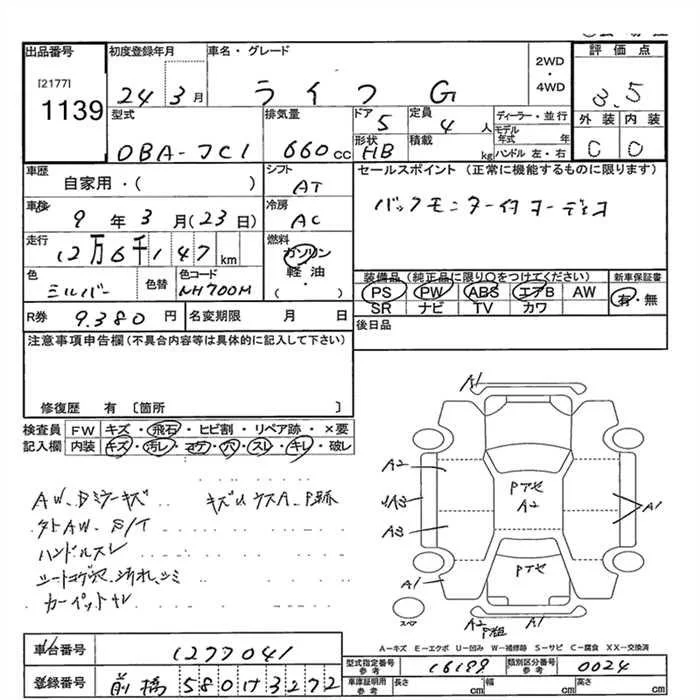 出品番号 初度登録年月 車名・グレード 2WD ・ 4WD 評価点
[2177]
1139
24年 3月 ライフ G 3.5
型式 排気量 ドア 5 定員 4人 ディーラー・並行 外装 内装
DBA-JC1 660cc 形状 HB 積載 kg モデル年式 年 ハンドル 左・右 C C
車歴 自家用・( ) シフト AT セールスポイント (正常に機能するものに限ります)
車検 9年 3月 (23日) 冷房 AC バックモニター付オーディオ
走行 12万6千147km 燃料 ガソリン 軽油 ・ ( )
色 シルバー 色替 色コード NH700M 装備品(純正品に限り○をつけてください) 新車保証書
PS PW ABS エアB AW 有・無
SR ナビ TV カワ
R券 9,380円 名変期限 月 日 後日品
注意事項申告欄(不具合内容等は具体的に記入して下さい)
修復歴 有 [箇所 ]
検査員 FW キズ・飛石・ヒビ割・リペア跡・×要
記入欄 内装 キズ・汚レ・コゲ・穴・スレ・キレ・破レ
AW、Dミラーキズ キズ、U、ウスA、P跡
ハンドルスレ
シートコゲ穴、汚れ、シミ
A1
A2 A3 A3 A1
Pアセ A2
Pアセ
A1
A2 A1
スペア
A-キズ E-エクボ U-凹み W-補修跡 S-サビ C-腐食 XX-交換済
車台番号 1277041
型式指定番号 参考 16199 類別区分番号 参考 0024
登録番号 前橋 580 け 3272 車庫証明用 参考 長さ cm 幅 cm 高さ cm